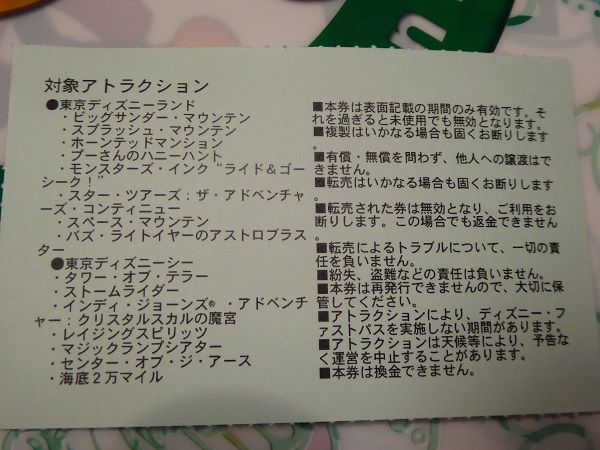 対象アトラクション
●東京ディズニーランド
・ビッグサンダー・マウンテン
・スプラッシュ・マウンテン
・ホーンテッドマンション
・プーさんのハニーハント
・モンスターズ・インク“ライド＆ゴー
シーク！”
・スター・ツアーズ：ザ・アドベンチャ
ーズ・コンティニュー
・スペース・マウンテン
・バズ・ライトイヤーのアストロブラス
ター
●東京ディズニーシー
・タワー・オブ・テラー
・ストームライダー
・インディ・ジョーンズ®・アドベンチ
ャー：クリスタルスカルの魔宮
・レイジングスピリッツ
・マジックランプシアター
・センター・オブ・ジ・アース
・海底２万マイル
■本券は表面記載の期間のみ有効です。そ
れを過ぎると未使用でも無効となります。
■複製はいかなる場合も固くお断りします
。
■有償・無償を問わず、他人への譲渡はで
きません。
■転売はいかなる場合も固くお断りします
。
■転売された券は無効となり、ご利用をお
断りします。この場合でも返金できません
。
■転売によるトラブルについて、一切の責
任を負いません。
■紛失、盗難などの責任は負いません。
■本券は再発行できませんので、大切に保
管してください。
■アトラクションにより、ディズニー・フ
ァストパスを実施しない期間があります。
■アトラクションは天候等により、予告な
く運営を中止することがあります。
■本券は換金できません。